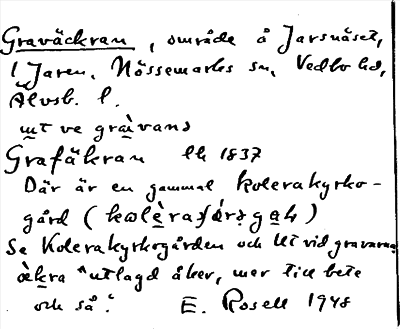 Graväckran, område å Jarsnäset,
l Jaren, Nössemarks sn, Vedbo hd,
Älvsb. l.
ut ve gravans
Grafåkran lh 1837
Där är en gammal kolerakyrko-
gård (kolèra
Se Kolerakyrkogården och Ut vid gravarna
òkra "utlagd åker, mer till bete
och så". E. Rosell 1948